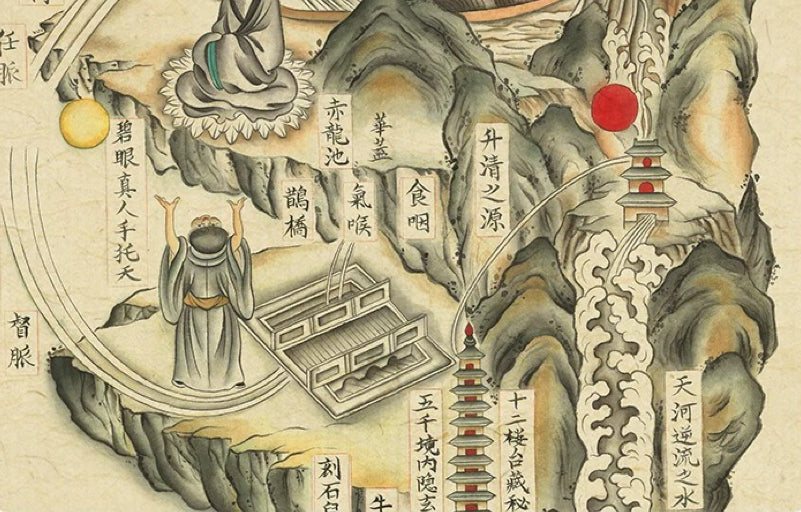 華蓋
赤龍池
任脈
升清之源
食咽
氣喉
鵲橋
碧眼真人手托天
督脈
天河逆流之水
十二楼台藏秘
五千境内隐玄
牛
刻石兒